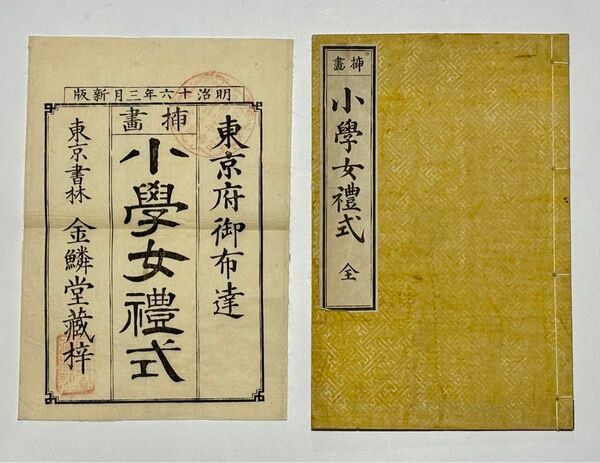 明治十六年三月新版
東京府御布達
挿畫
小學女禮式
東京書林 金鱗堂藏梓
挿畫
小學女禮式 全